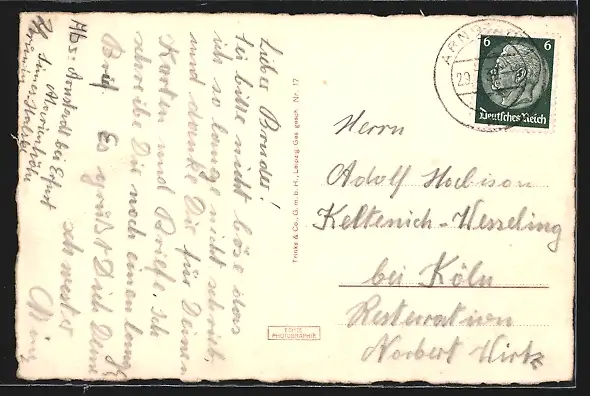 Lieber Bruder!
Sei bitte nicht böse dass
ich so lange nicht schrieb,
und danke Dir für Deinen
Karten und Briefe. Ich
schreibe Dir noch einen langen
Brief. Es grüßt Dich Deine
schwester
Abs: Arnstadt bei Erfurt
Marienhöhe
Trinks & Co., G.m.b.H., Leipzig Ges. gesch. Nr. 17
ECHTE
PHOTOGRAPHIE
ARNS
29.
6 6
Deutsches Reich
Herrn
Adolf Hobison
Keltenich-Wesseling
bei Köln
Resteuration
Norbert Wirtz